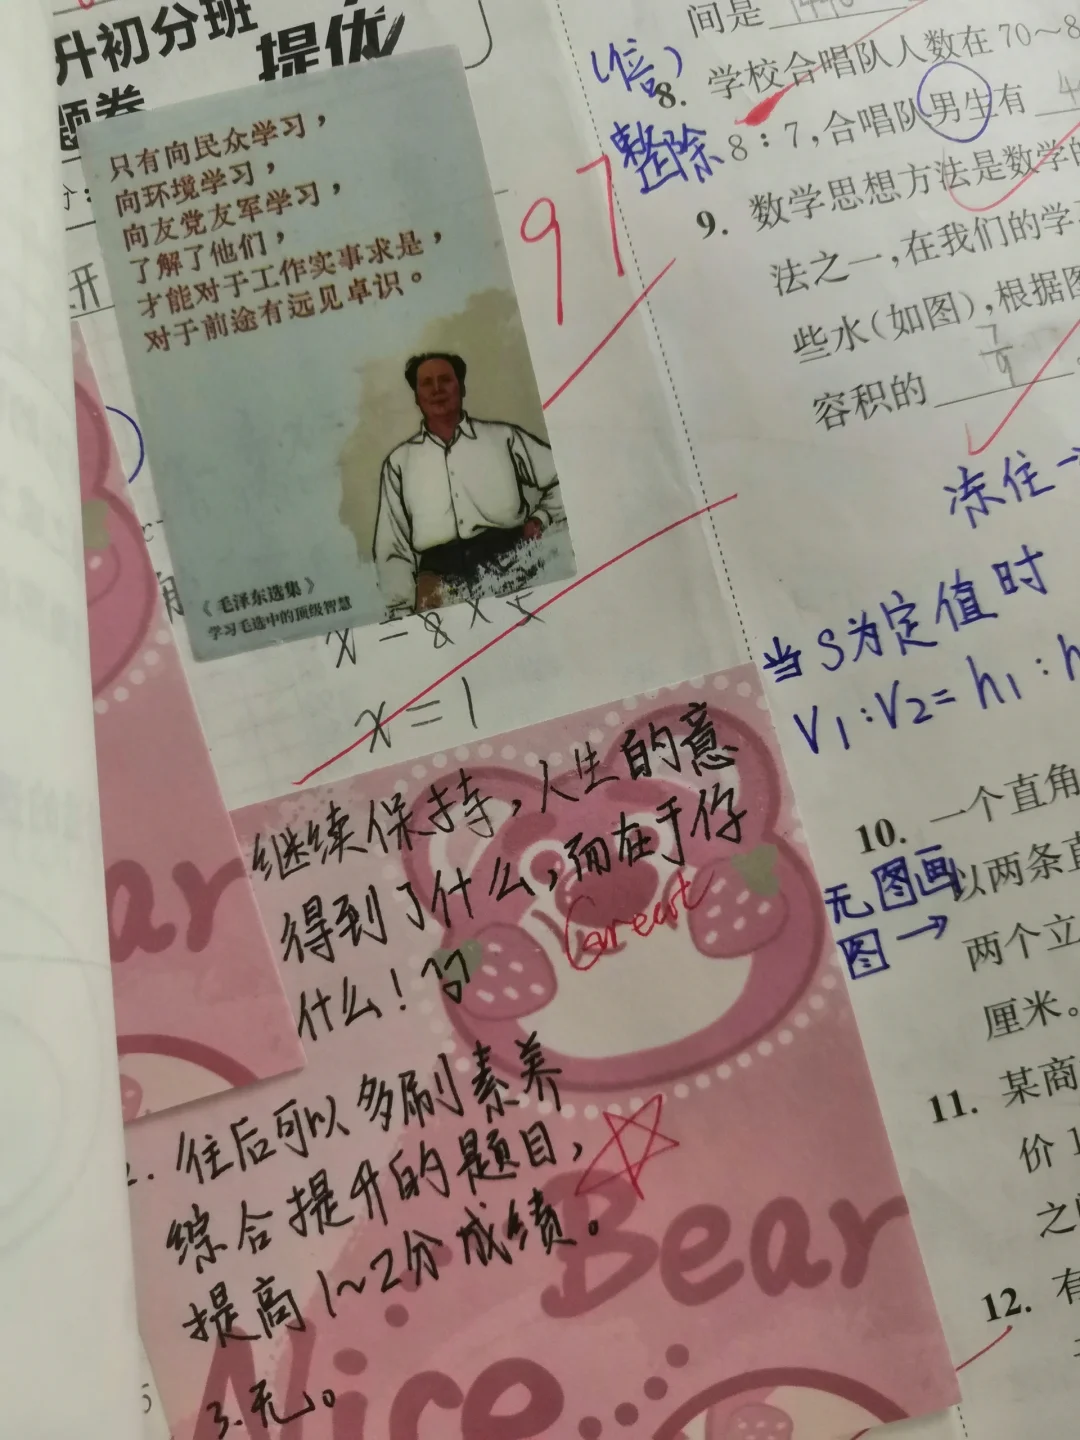 升初分班
提优
题卷
只有向民众学习，
向环境学习，
向友党友军学习，
了解了他们，
才能对于工作实事求是，
对于前途有远见卓识。
《毛泽东选集》
学习毛选中的顶级智慧
97
x=8×5
x=1
继续保持，人生的意
得到了什么，而在于你
什么！
Great
往后可以多刷素养
综合提升的题目，
提高1~2分成绩。
3.无。
Bear
Nice
ar
间是
(倍)
8. 学校合唱队人数在70～8
整除
8：7，合唱队男生有
9. 数学思想方法是数学的
法之一，在我们的学
些水（如图），根据图
容积的 7/9
冻住
当S为定值时
V1:V2=h1:h
10. 一个直角
无图画
图→
以两条直
两个立
厘米。
11. 某商
价1
之
12. 有